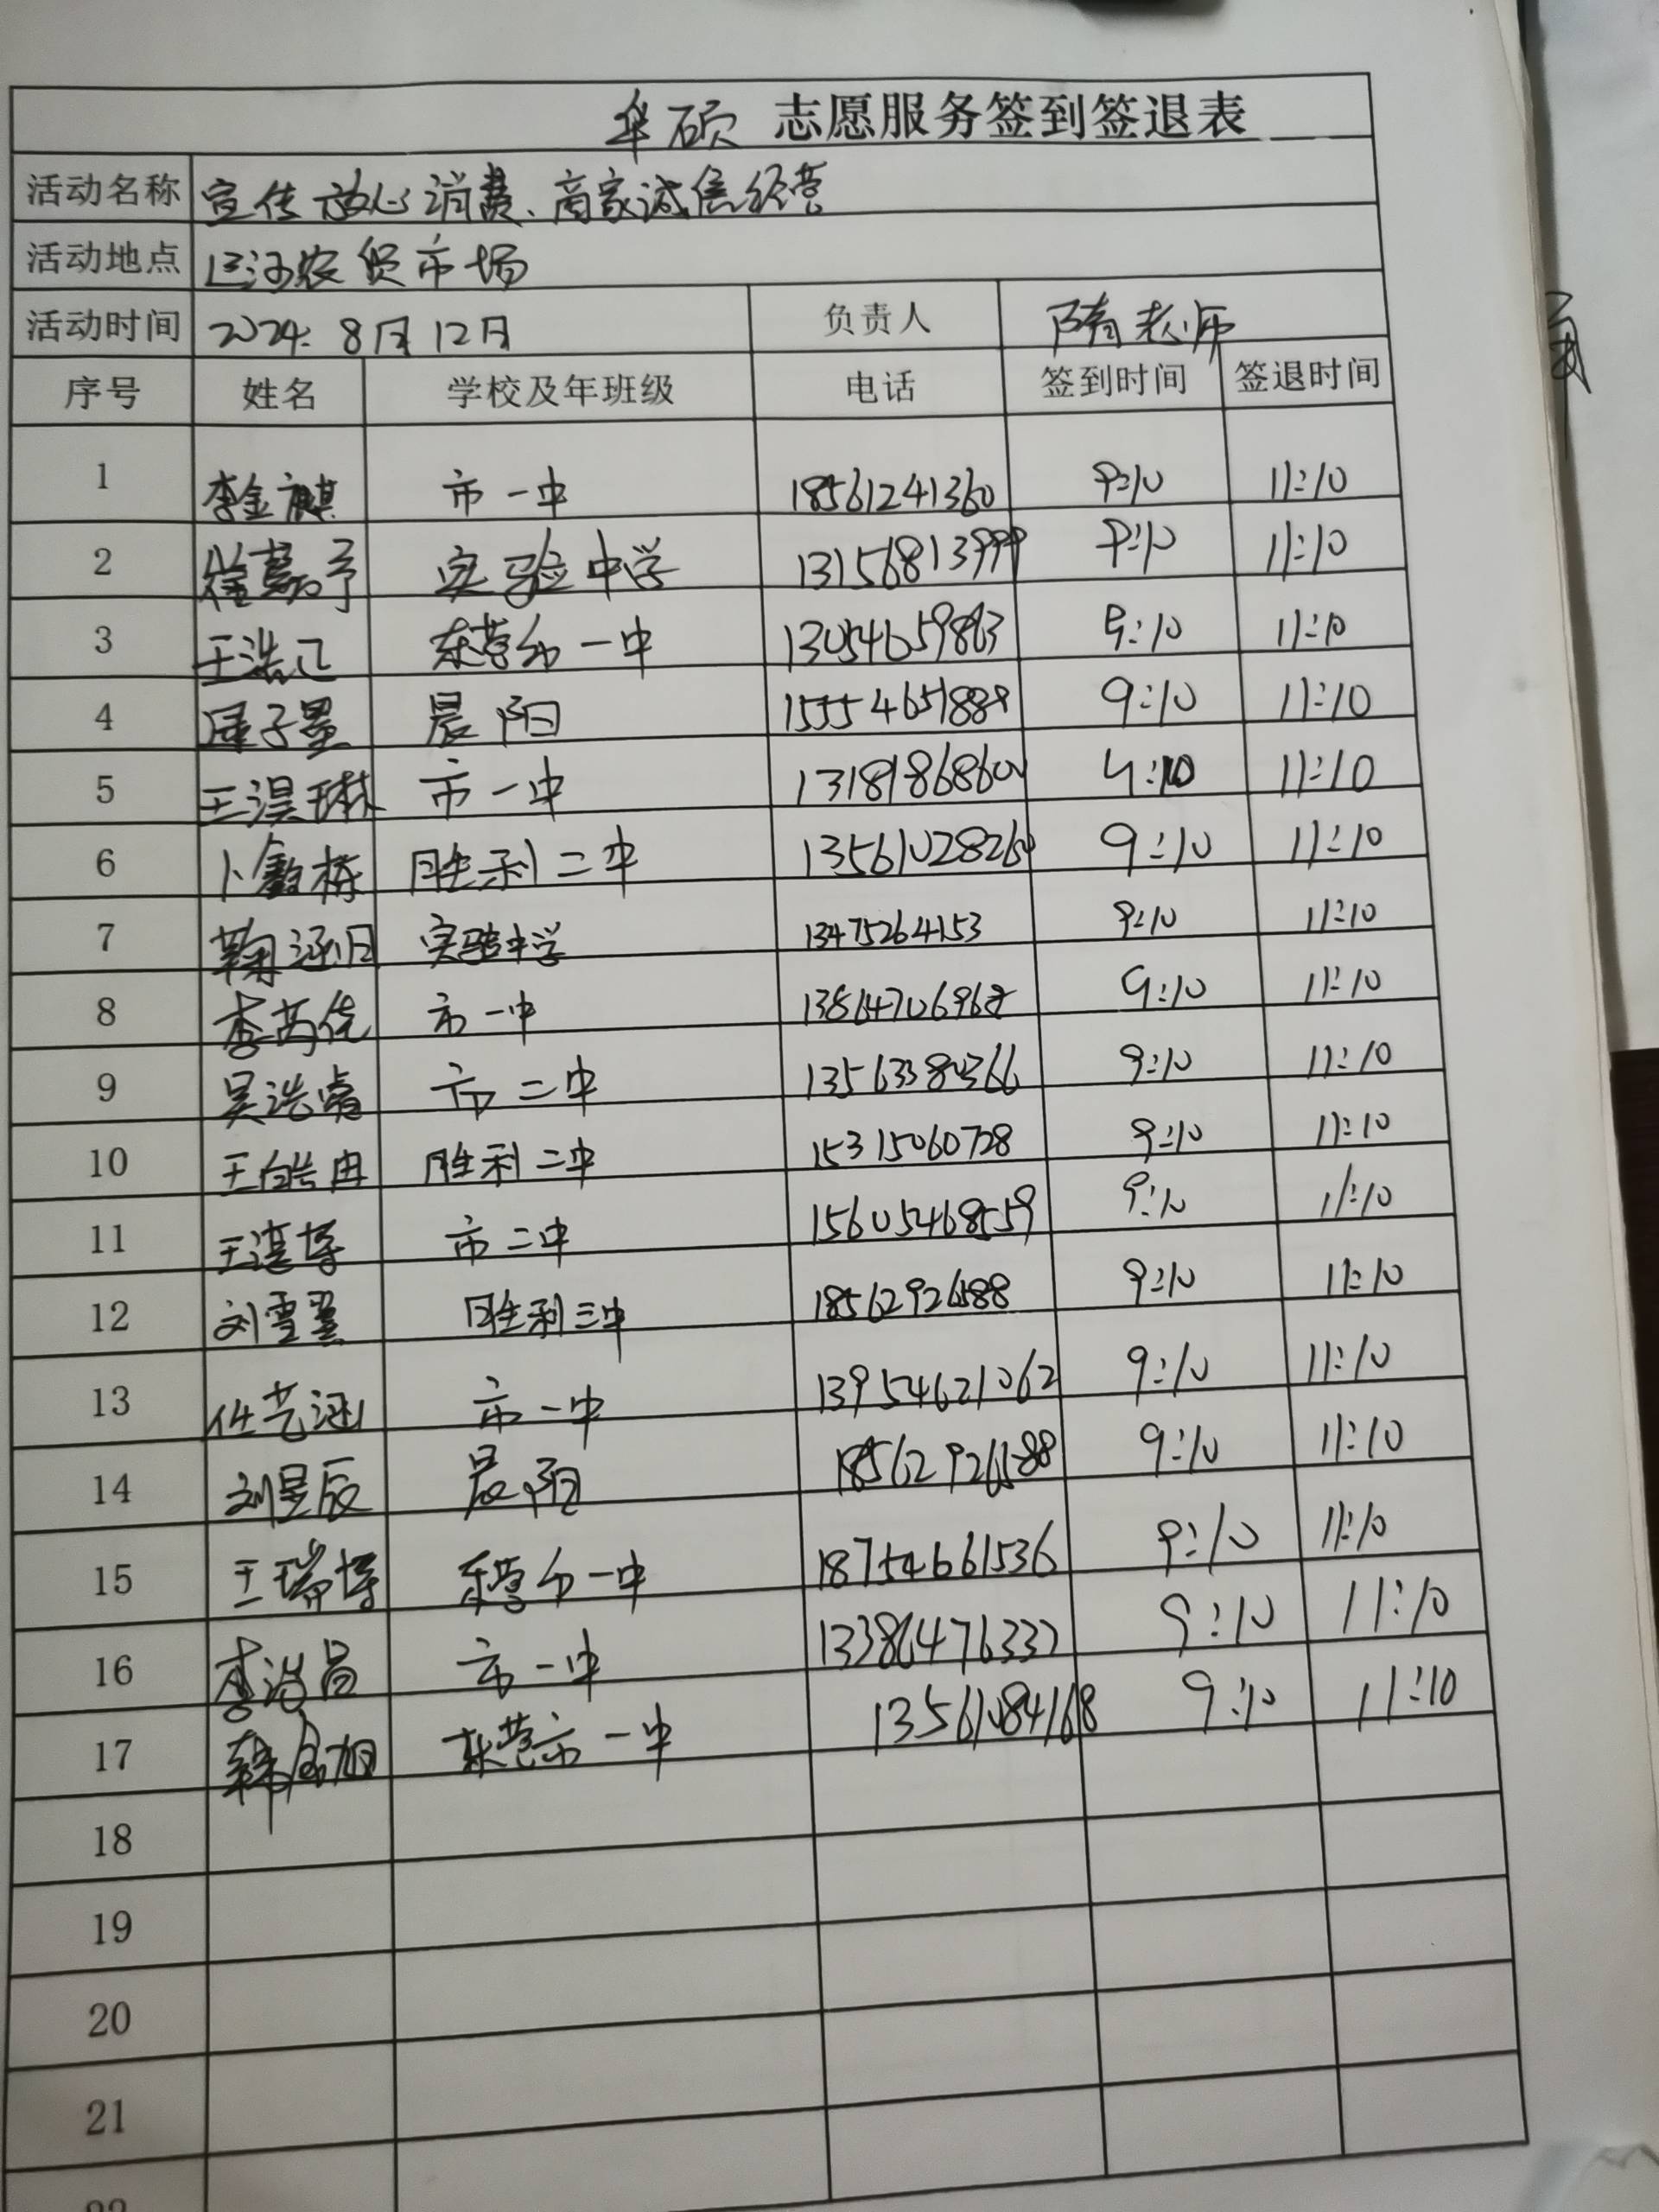 华硕 志愿服务签到签退表
活动名称 宣传放心消费、商家诚信经营
活动地点 辽河农贸市场
活动时间 2024. 8月12日 负责人 隋老师
序号 姓名 学校及年班级 电话 签到时间 签退时间
1 李金麒 市一中 18561241360 9:10 11:10
2 实验中学 13156813999 9:10 11:10
3 王浩 东营市一中 13054659863 9:10 11:10
4 子墨 晨阳 15554651888 9:10 11:10
5 王淏琳 市一中 13181868600 9:10 11:10
6 卜鑫栋 胜利二中 13561028260 9:10 11:10
7 鞠涵旭 实验中学 13475264153 9:10 11:10
8 李芮佳 市一中 9:10 11:10
9 吴浩睿 市二中 13563380366 9:10 11:10
10 王皓冉 胜利二中 15315060728 9:10 11:10
11 王湛博 市二中 15605468559 9:10 11:10
12 刘雪 胜利三中 18562926588 9:10 11:10
13 任艺涵 市一中 13954621062 9:10 11:10
14 刘昱辰 晨阳 18562926588 9:10 11:10
15 王瑞博 东营市一中 18754661536 9:10 11:10
16 李浩 市一中 9:10 11:10
17 韩旭 东营市一中 13561084168 9:10 11:10
18
19
20
21